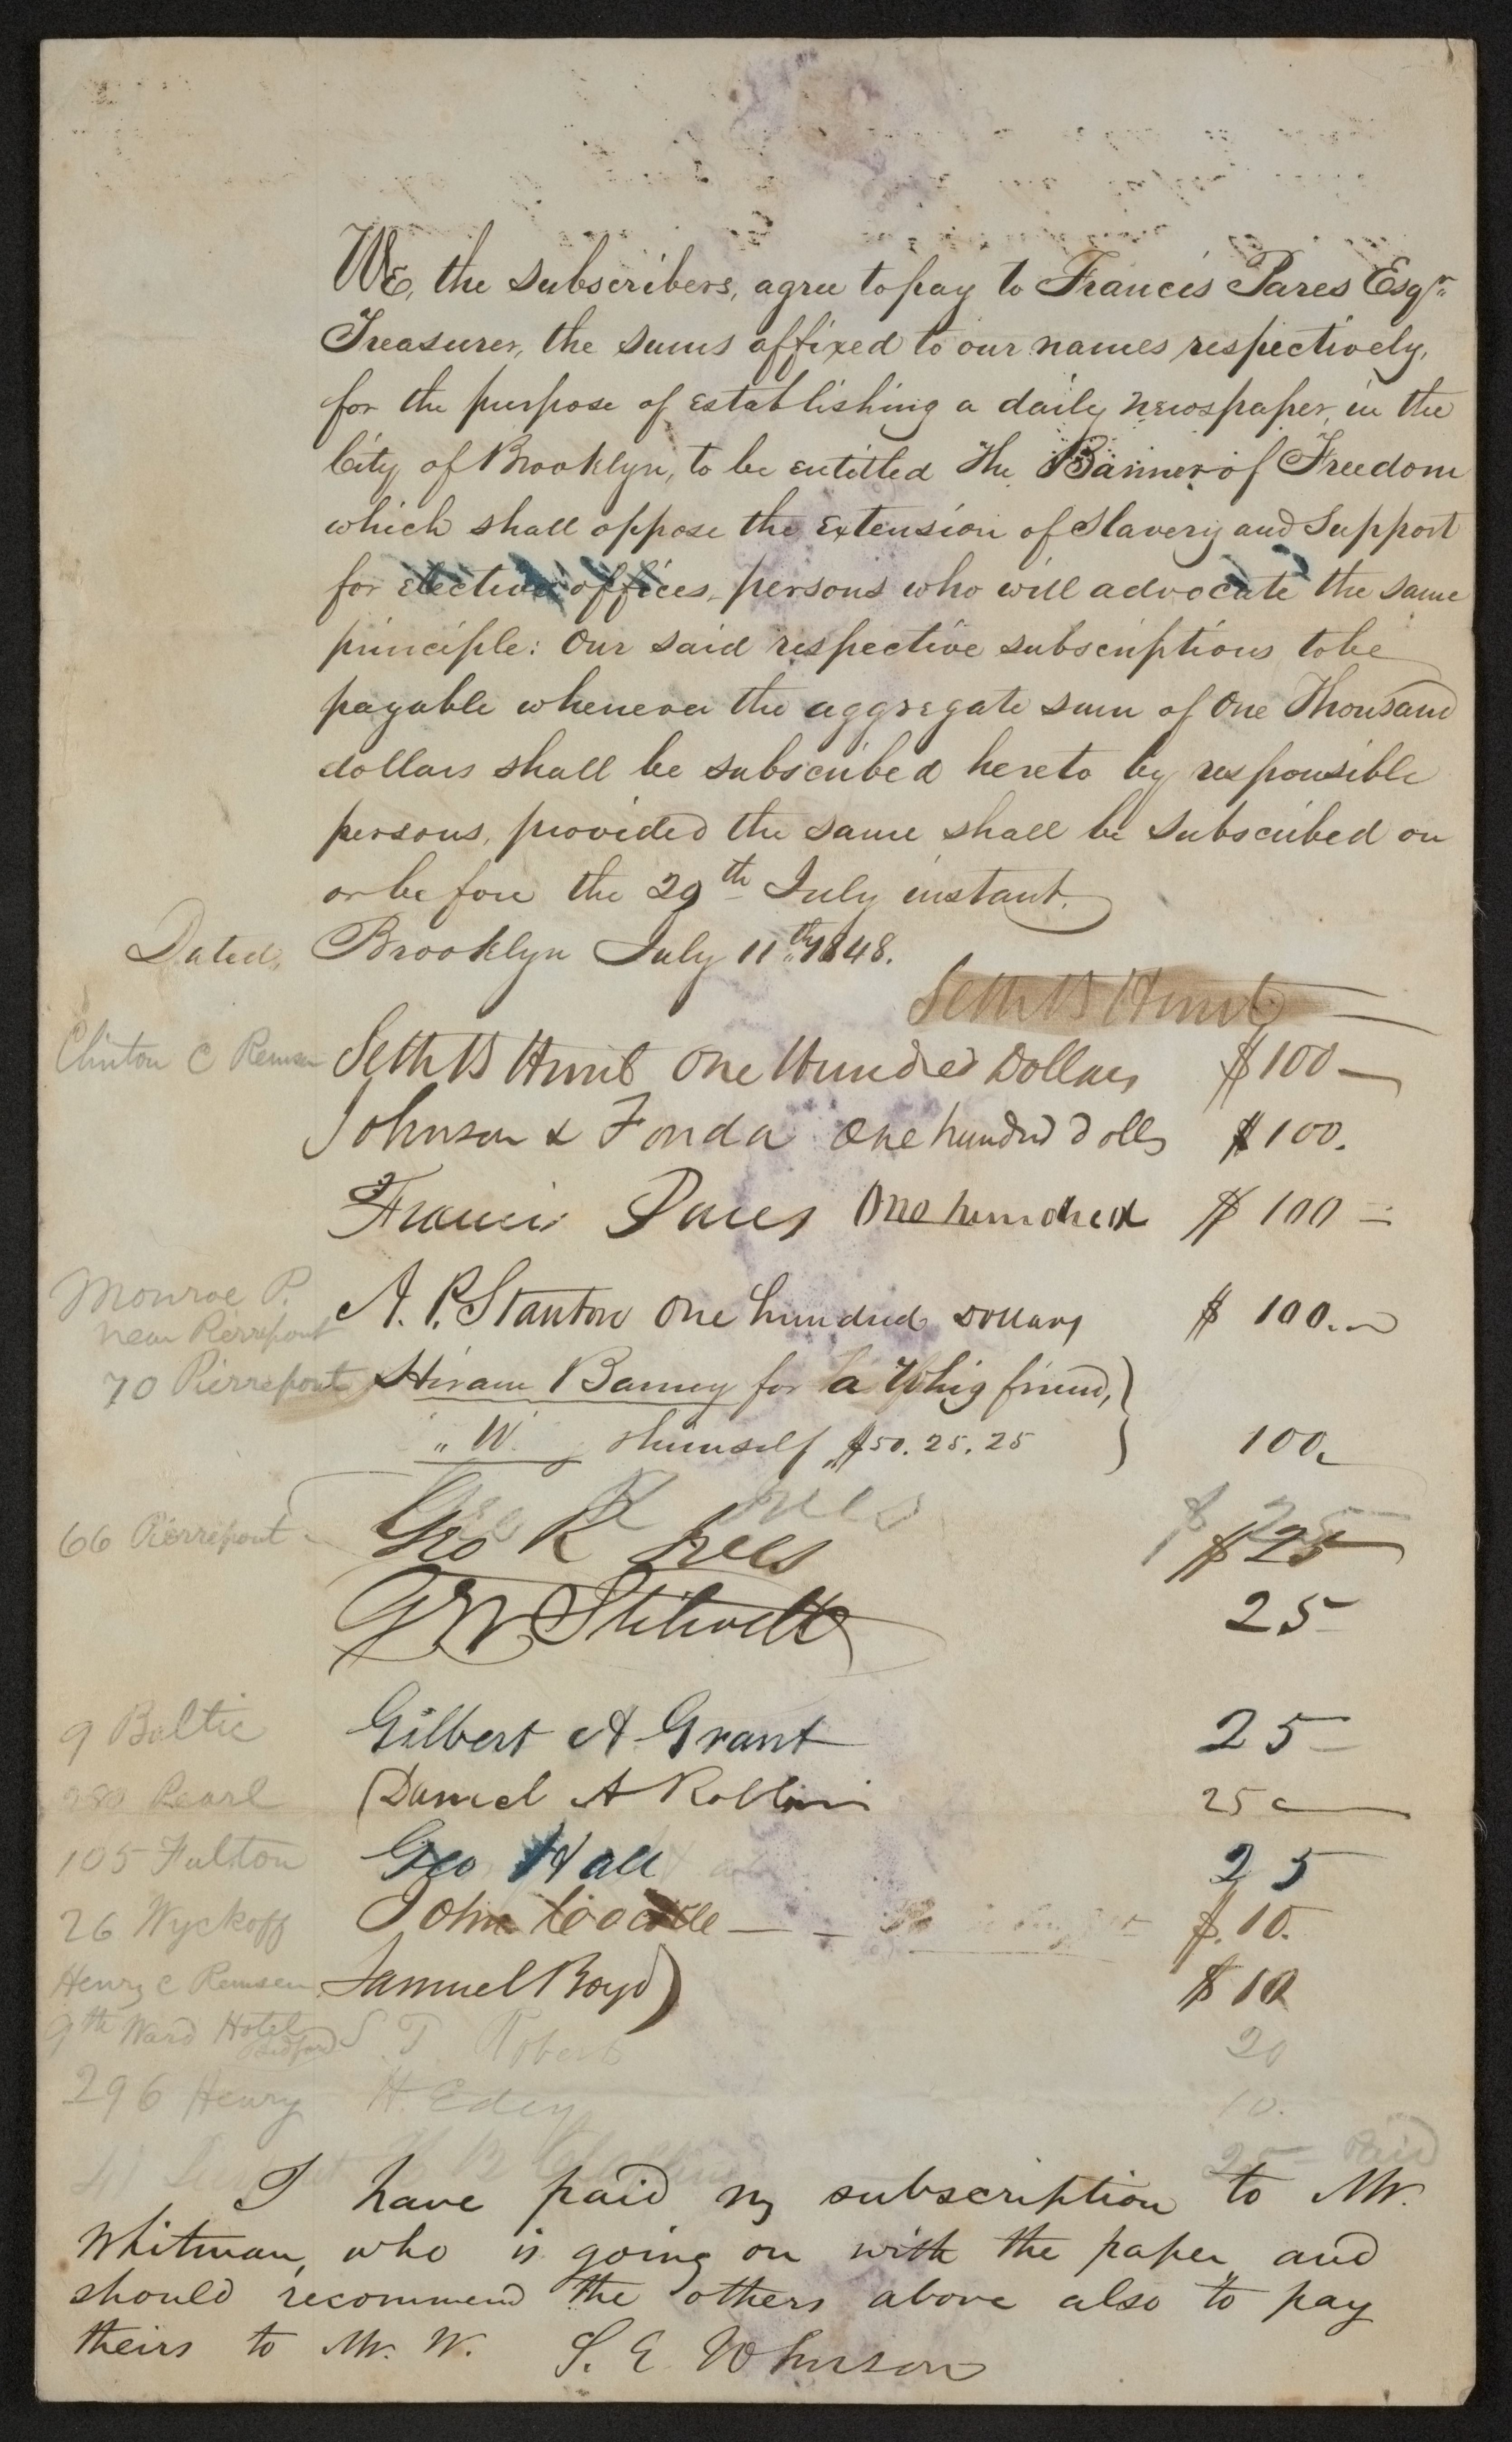 We, the subscribers, agree to pay to Francis Pares Esqr.
Treasurer, the sums affixed to our names respectively,
for the purpose of establishing a daily newspaper, in the
City of Brooklyn, to be entitled The Banner of Freedom
which shall oppose the extension of Slavery and support
for elective offices, persons who will advocate the same
principle: Our said respective subscriptions to be
payable whenever the aggregate sum of One Thousand
dollars shall be subscribed hereto by responsible
persons, provided the same shall be subscribed on
or before the 29th July instant.
Dated, Brooklyn July 11th, 1848.
Seth B Hunt
Clinton C Remsen Seth B Hunt One Hundred Dollars $100
Johnson & Fonda One hundred dolls $100.
Francis Pares One hundred $100
Monroe P. near Pierrepont A. P. Stanton One hundred Dollars $100.
70 Pierrepont Hiram Barney for a Whig friend,
" W. himself $50.25.25 100.
$25
66 Pierrepont Geo R Ives $25
G W Stilwell 25
9 Baltic Gilbert A Grant 25
280 Pearl Daniel A Robbins 25
105 Fulton Geo Hall 25
26 Wyckoff John $.10.
Henry C Remsen Samuel Boyd $10
9th Ward Hotel Bedford S T Robert 20
296 Henry H. Edey 10.
41 B 25 Paid
I have paid my subscription to Mr.
Whitman, who is going on with the paper and
should recommend the others above also to pay
theirs to Mr. W. S. E. Johnson